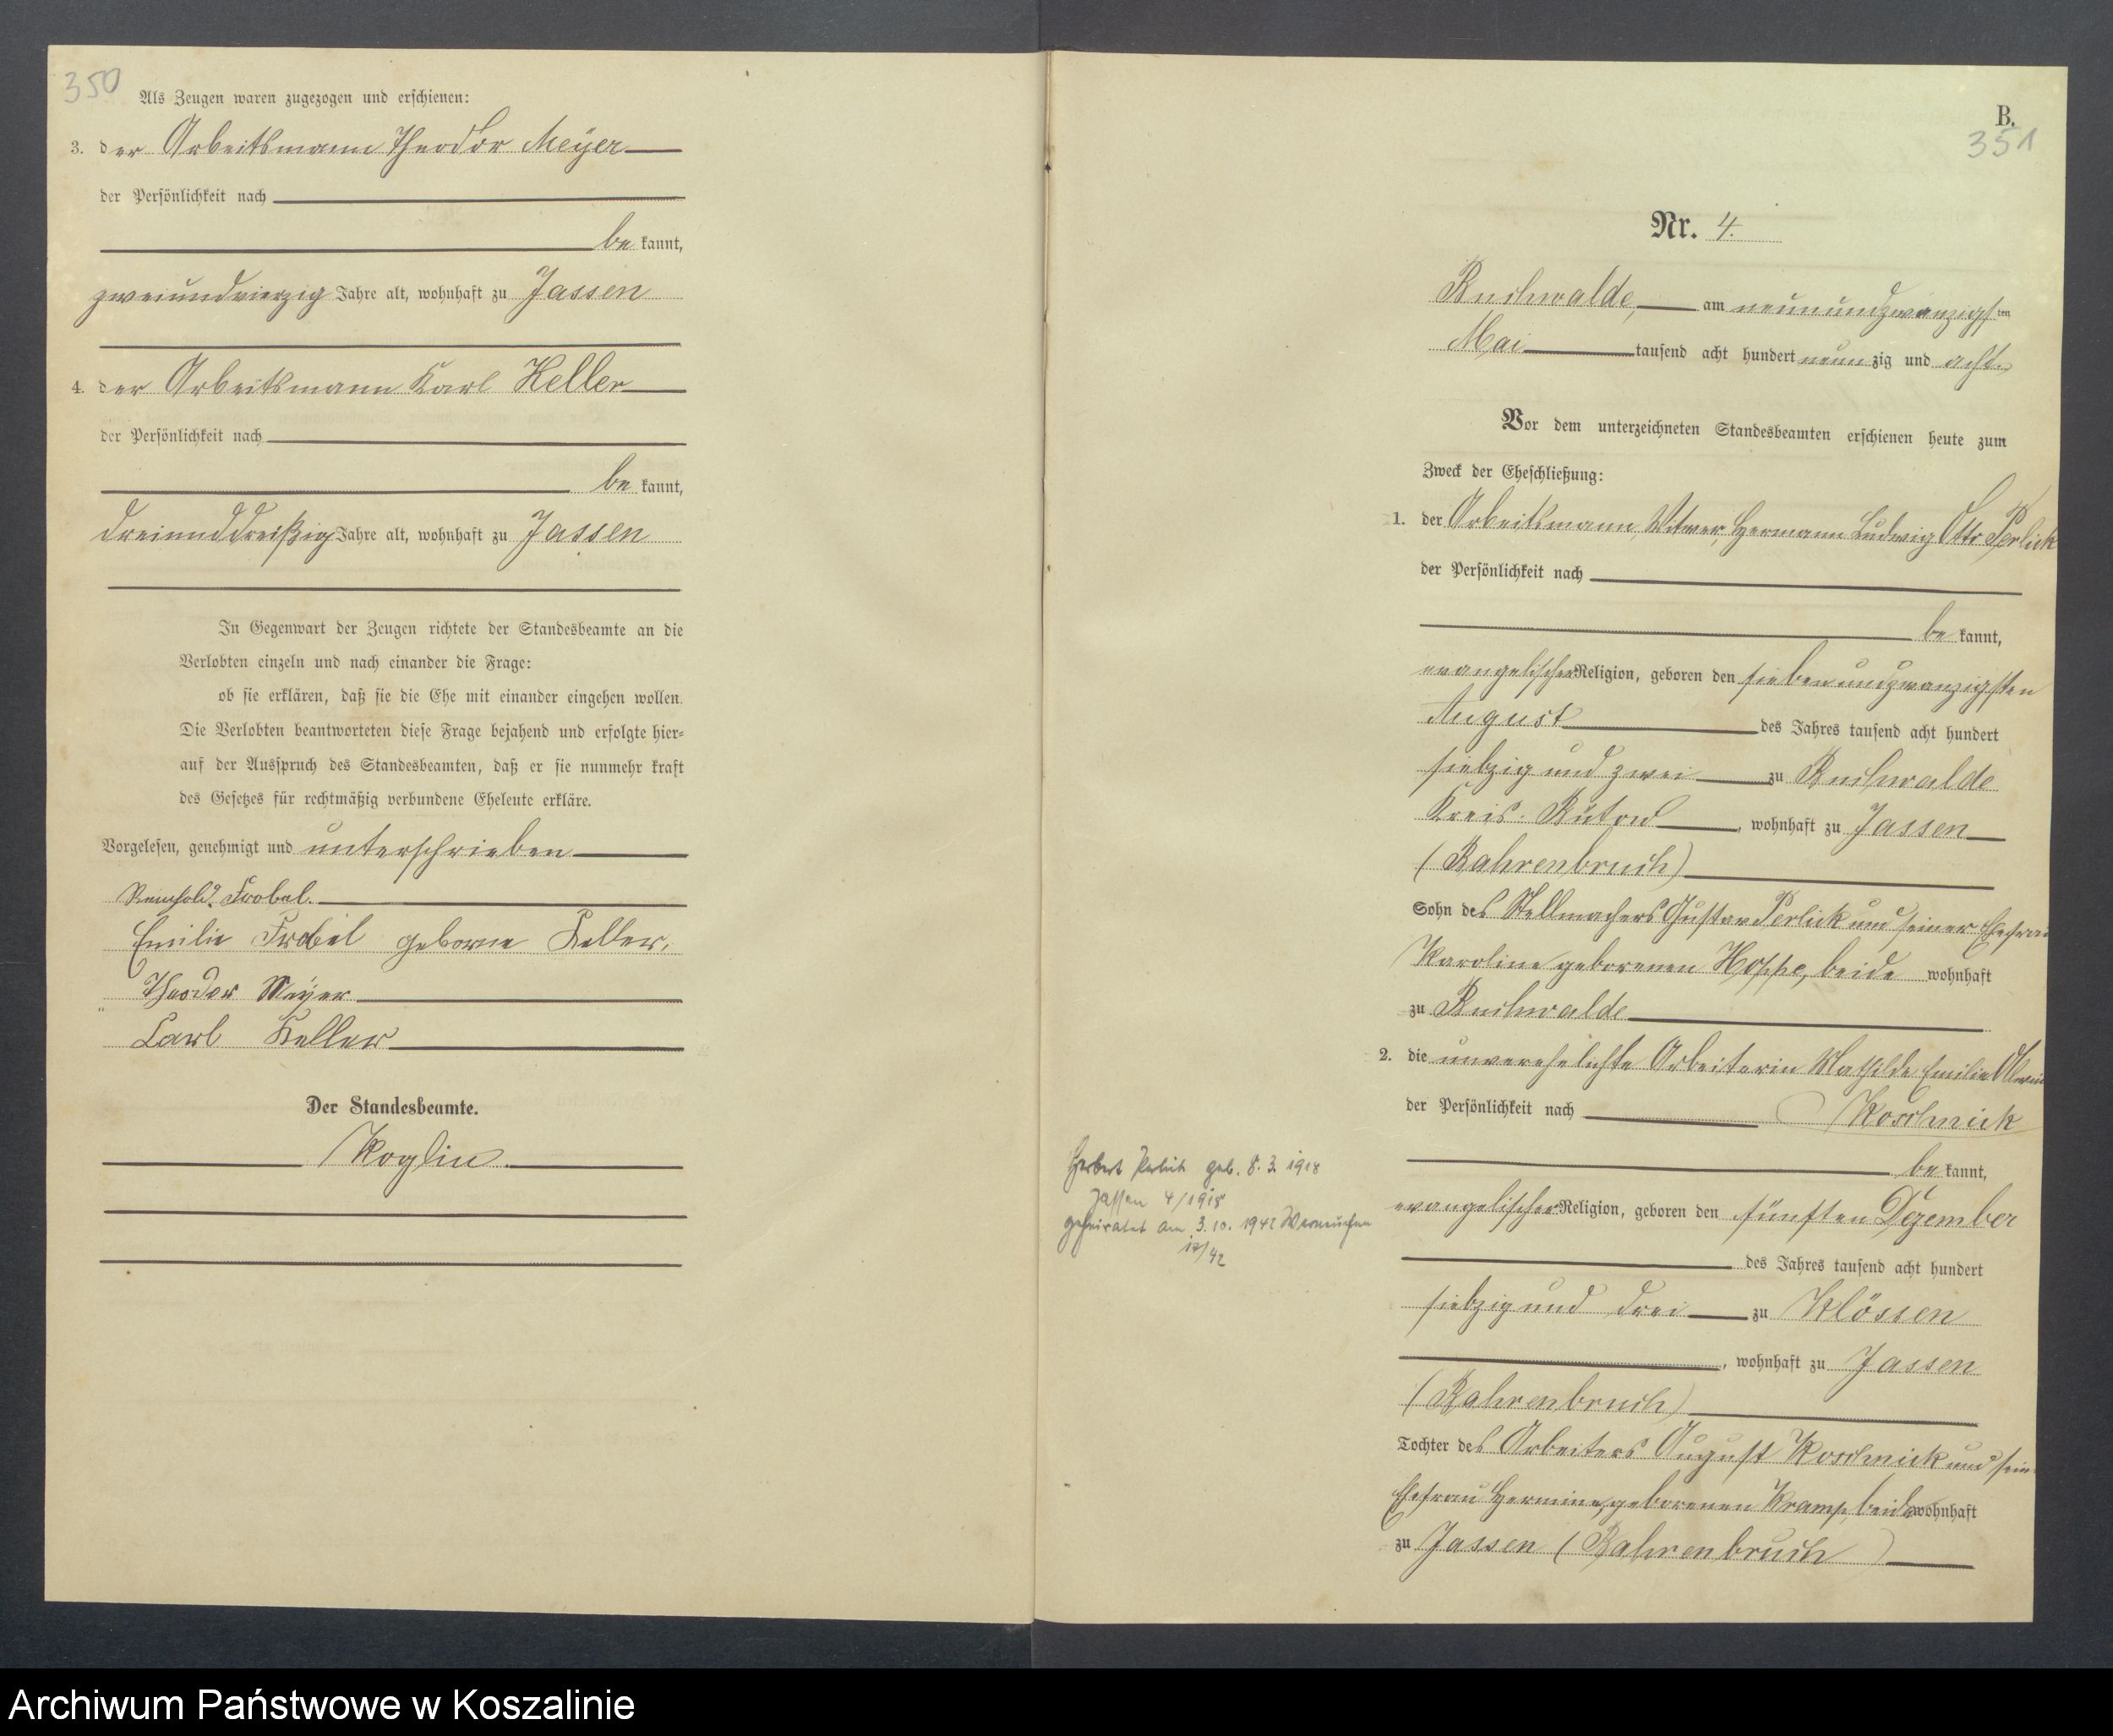 350
Als Zeugen waren zugezogen und erschienen:
3. der Arbeitsmann Theodor Meyer
der Persönlichkeit nach
be kannt,
zweiundvierzig Jahre alt, wohnhaft zu Jassen
4. der Arbeitsmann Karl Keller
der Persönlichkeit nach
be kannt,
dreiunddreißig Jahre alt, wohnhaft zu Jassen
In Gegenwart der Zeugen richtete der Standesbeamte an die
Verlobten einzeln und nach einander die Frage:
ob sie erklären, daß sie die Ehe mit einander eingehen wollen.
Die Verlobten beantworteten diese Frage bejahend und erfolgte hier-
auf der Ausspruch des Standesbeamten, daß er sie nunmehr kraft
des Gesetzes für rechtmäßig verbundene Eheleute erkläre.
Vorgelesen, genehmigt und unterschrieben
Reinhold Frobel.
Emilie Frobel geborne Keller.
Theodor Meyer
Carl Keller
Der Standesbeamte.
Koglin.
B.
351
Nr. 4.
Buchwalde, am neunundzwanzigsten
Mai tausend acht hundert neunzig und acht
Vor dem unterzeichneten Standesbeamten erschienen heute zum
Zweck der Eheschließung:
1. der Arbeitsmann, Witwer, Hermann Ludwig Otto Perlick
der Persönlichkeit nach
be kannt,
evangelischer Religion, geboren den siebenundzwanzigsten
August des Jahres tausend acht hundert
siebzig und zwei zu Buchwalde
Kreis Bütow, wohnhaft zu Jassen
(Bahrenbruch)
Sohn des Stellmachers Gustav Perlick und seiner Ehefrau
Karoline geborenen Hoppe, beide wohnhaft
zu Buchwalde
2. die unverehelichte Arbeiterin Mathilde Emilie
der Persönlichkeit nach Koschnick
be kannt,
evangelischer Religion, geboren den fünften Dezember
des Jahres tausend acht hundert
siebzig und drei zu Klössen
, wohnhaft zu Jassen
(Bahrenbruch)
Tochter des Arbeiters August Koschnick und sein
Ehefrau Hermine, geborenen Kramp, beide wohnhaft
zu Jassen (Bahrenbruch)
Herbert Perlick geb. 8. 3. 1918
Jassen 4/1918
geheiratet am 3. 10. 1942 Werneuchen
Archiwum Państwowe w Koszalinie